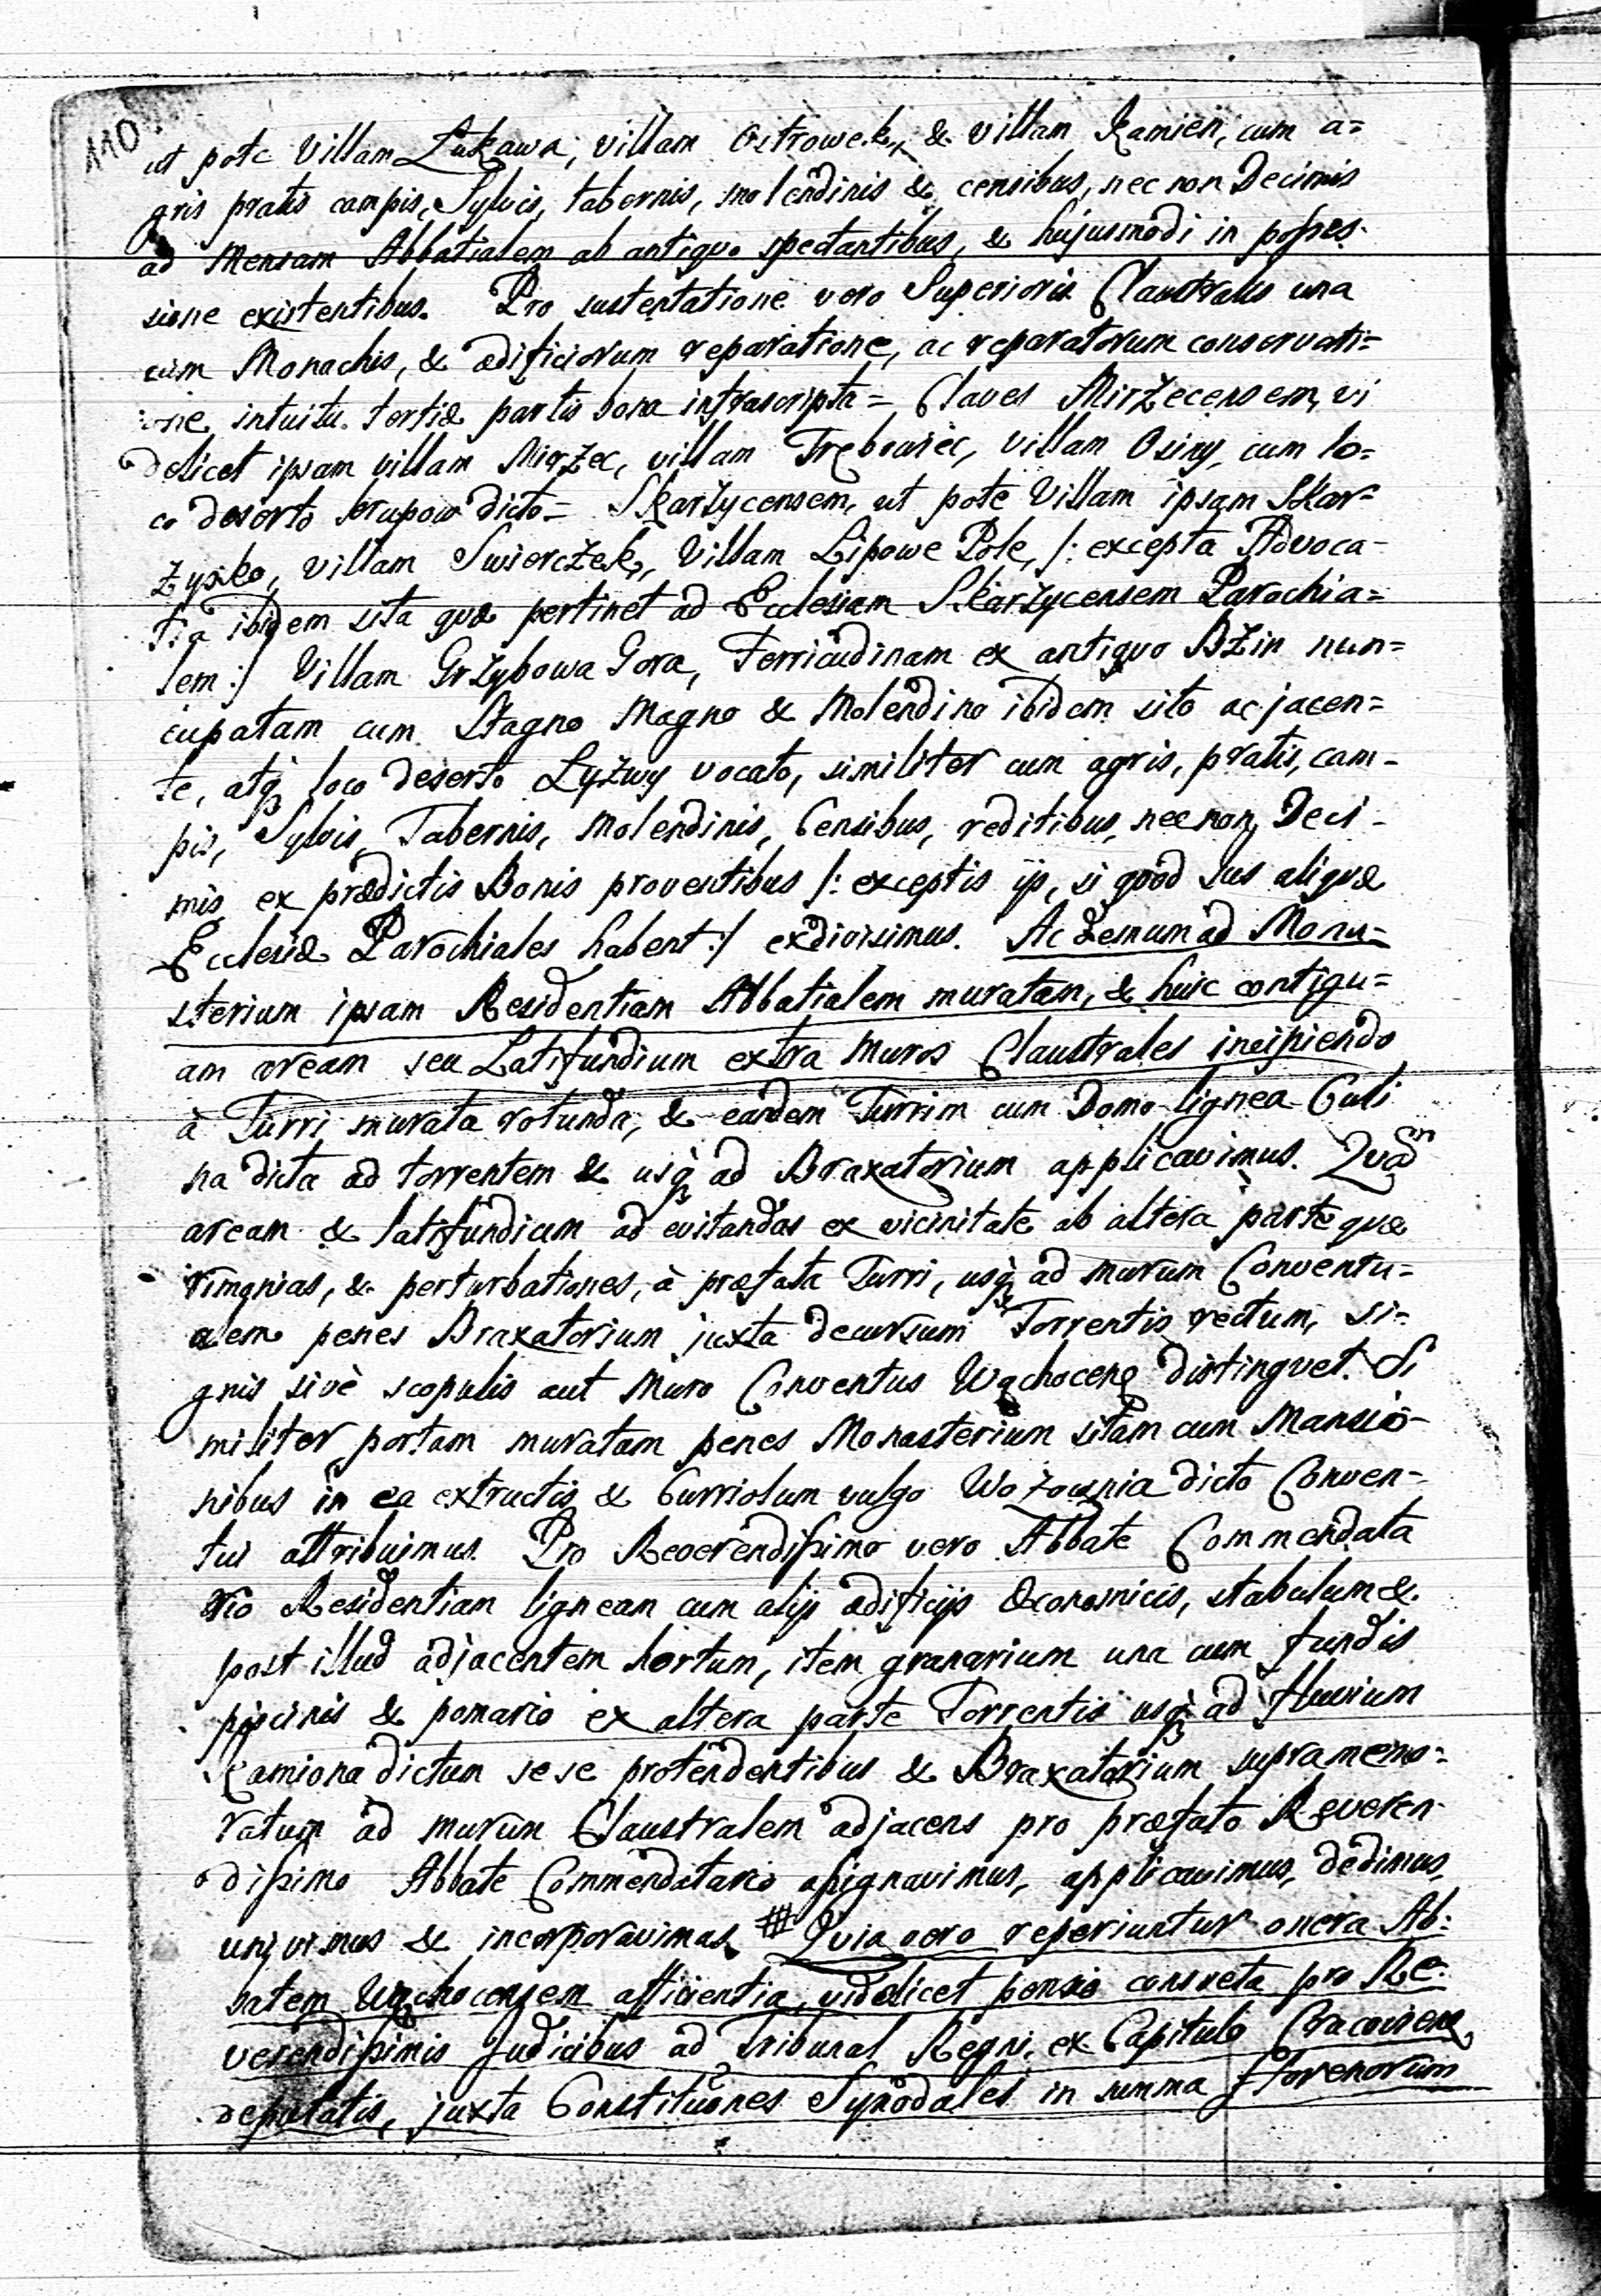 110
ut pote Villam Łukawa, villam Ostrowek, & villam Kamień, cum a=
gris pratis campis, Sylvis, tabernis, molendinis & censibus, nec non Decimis
ad Mensam Abbatialem ab antiquo spectantibus, & hujusmodi in posses-
sione existentibus. Pro sustentatione vero Superioris Claustralis una
cum Monachis, & ædificiorum reparatione, ac reparatorum conservati=
one intuitu tertiæ partis bona infrascripta = Claves Mirżecensem, vi
delicet ipsam villam Mirżec, villam Trębowiec, villam Osiny, cum lo=
co deserto Krupow dicto = Skarżycensem, ut pote Villam ipsam Skar=
żysko, villam Swierczek, Villam Lipowe Pole, /: excepta Advoca-
tia ibidem sita quæ pertinet ad Ecclesiam Skarżycensem Parochia=
lem :/ Villam Grżybowa Gora, Ferricudinam ex antiquo Bżin nun=
cupatam cum Stagno Magno & Molendino ibidem sito acjacen=
te, atq́ loco deserto Łyżwy vocato, similiter cum agris, pratis, cam-
pis, Sylvis, Tabernis, Molendinis, Censibus, reditibus, nec non Deci-
mis ex prædictis Bonis proventibus /: exceptis ijs, si quod Jus aliquæ
Ecclesiæ Parochiales habent :/ exdivisimus. Ac demum ad Mona=
sterium ipsam Residentiam Abbatialem muratam, & huic contigu=
am aream seu Latifundium extra Muros Claustrales incipiendo
à Turri murata rotunda, & eandem Turrim cum Domo lignea Culi
na dicta ad torrentem & usq́ ad Braxatorium applicavimus. Quãd
aream & latifundium ad evitandas ex vicinitate ab altera parte quæ
rimonias, & perturbationes, à præfata Turri, usq́ ad murum Conventu=
alem penes Braxatorium juxta decursum Torrentis rectum, si=
gnis sivè scopulis aut Muro Conventus Wąchocenș distinguet. Si
militer portam muratam penes Monasterium sitam cum Mansio-
nibus in ea extructis & Curriolum vulgo Wozownia dicto Conven-
tui attribuimus. Pro Reverendissimo vero Abbate Commendata
rio Residentiam ligneam cum alijs ædificijs Œconomicis, stabulum &
post illud adjacentem hortum, item granarium una cum fundis
piscinis & pomario ex altera parte Torrentis usq́ ad fluvium
Kamiona dictum sese protendentibus & Braxatorium supramemo=
ratum ad murum Claustralem adjacens pro præfato Reveren-
dissimo Abbate Commendatario assignavimus, applicavimus, dedimus,
univimus & incorporavimus. # Quia vero reperiuntur onera Ab=
batem Wąchocensem afficientia, videlicet pensio consueta pro Re=
verendissimis Judicibus ad Tribunal Regni, ex Capitulo Cracoviens
deputatis, juxta Constituões Synodales in summa florenorum